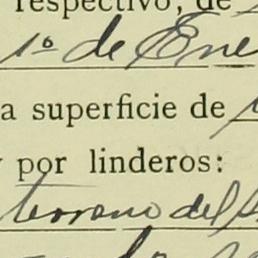 respectivo, de
1º de Ene
a superficie de
por linderos:
terreno del